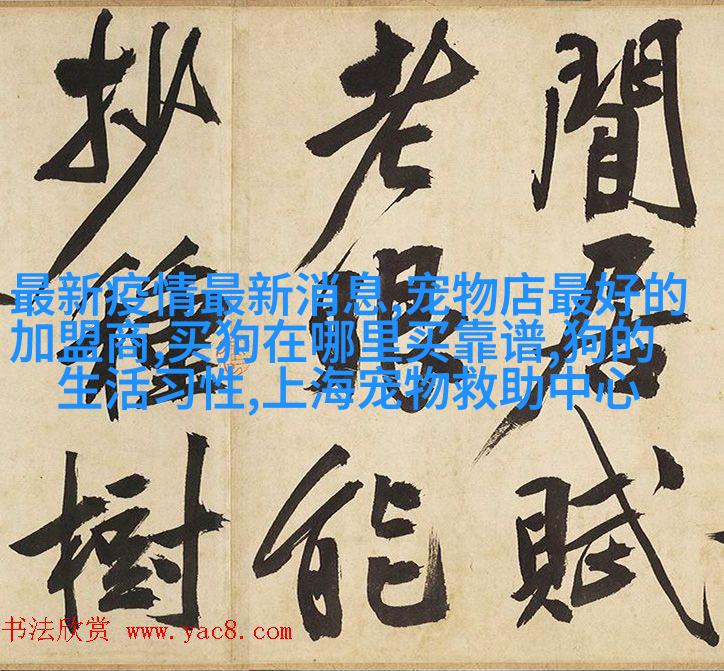 閒居賦
老能
抄種樹
最新疫情最新消息,宠物店最好的
加盟商,买狗在哪里买靠谱,狗的
生活习性,上海宠物救助中心
书法欣赏 www.yac8.com